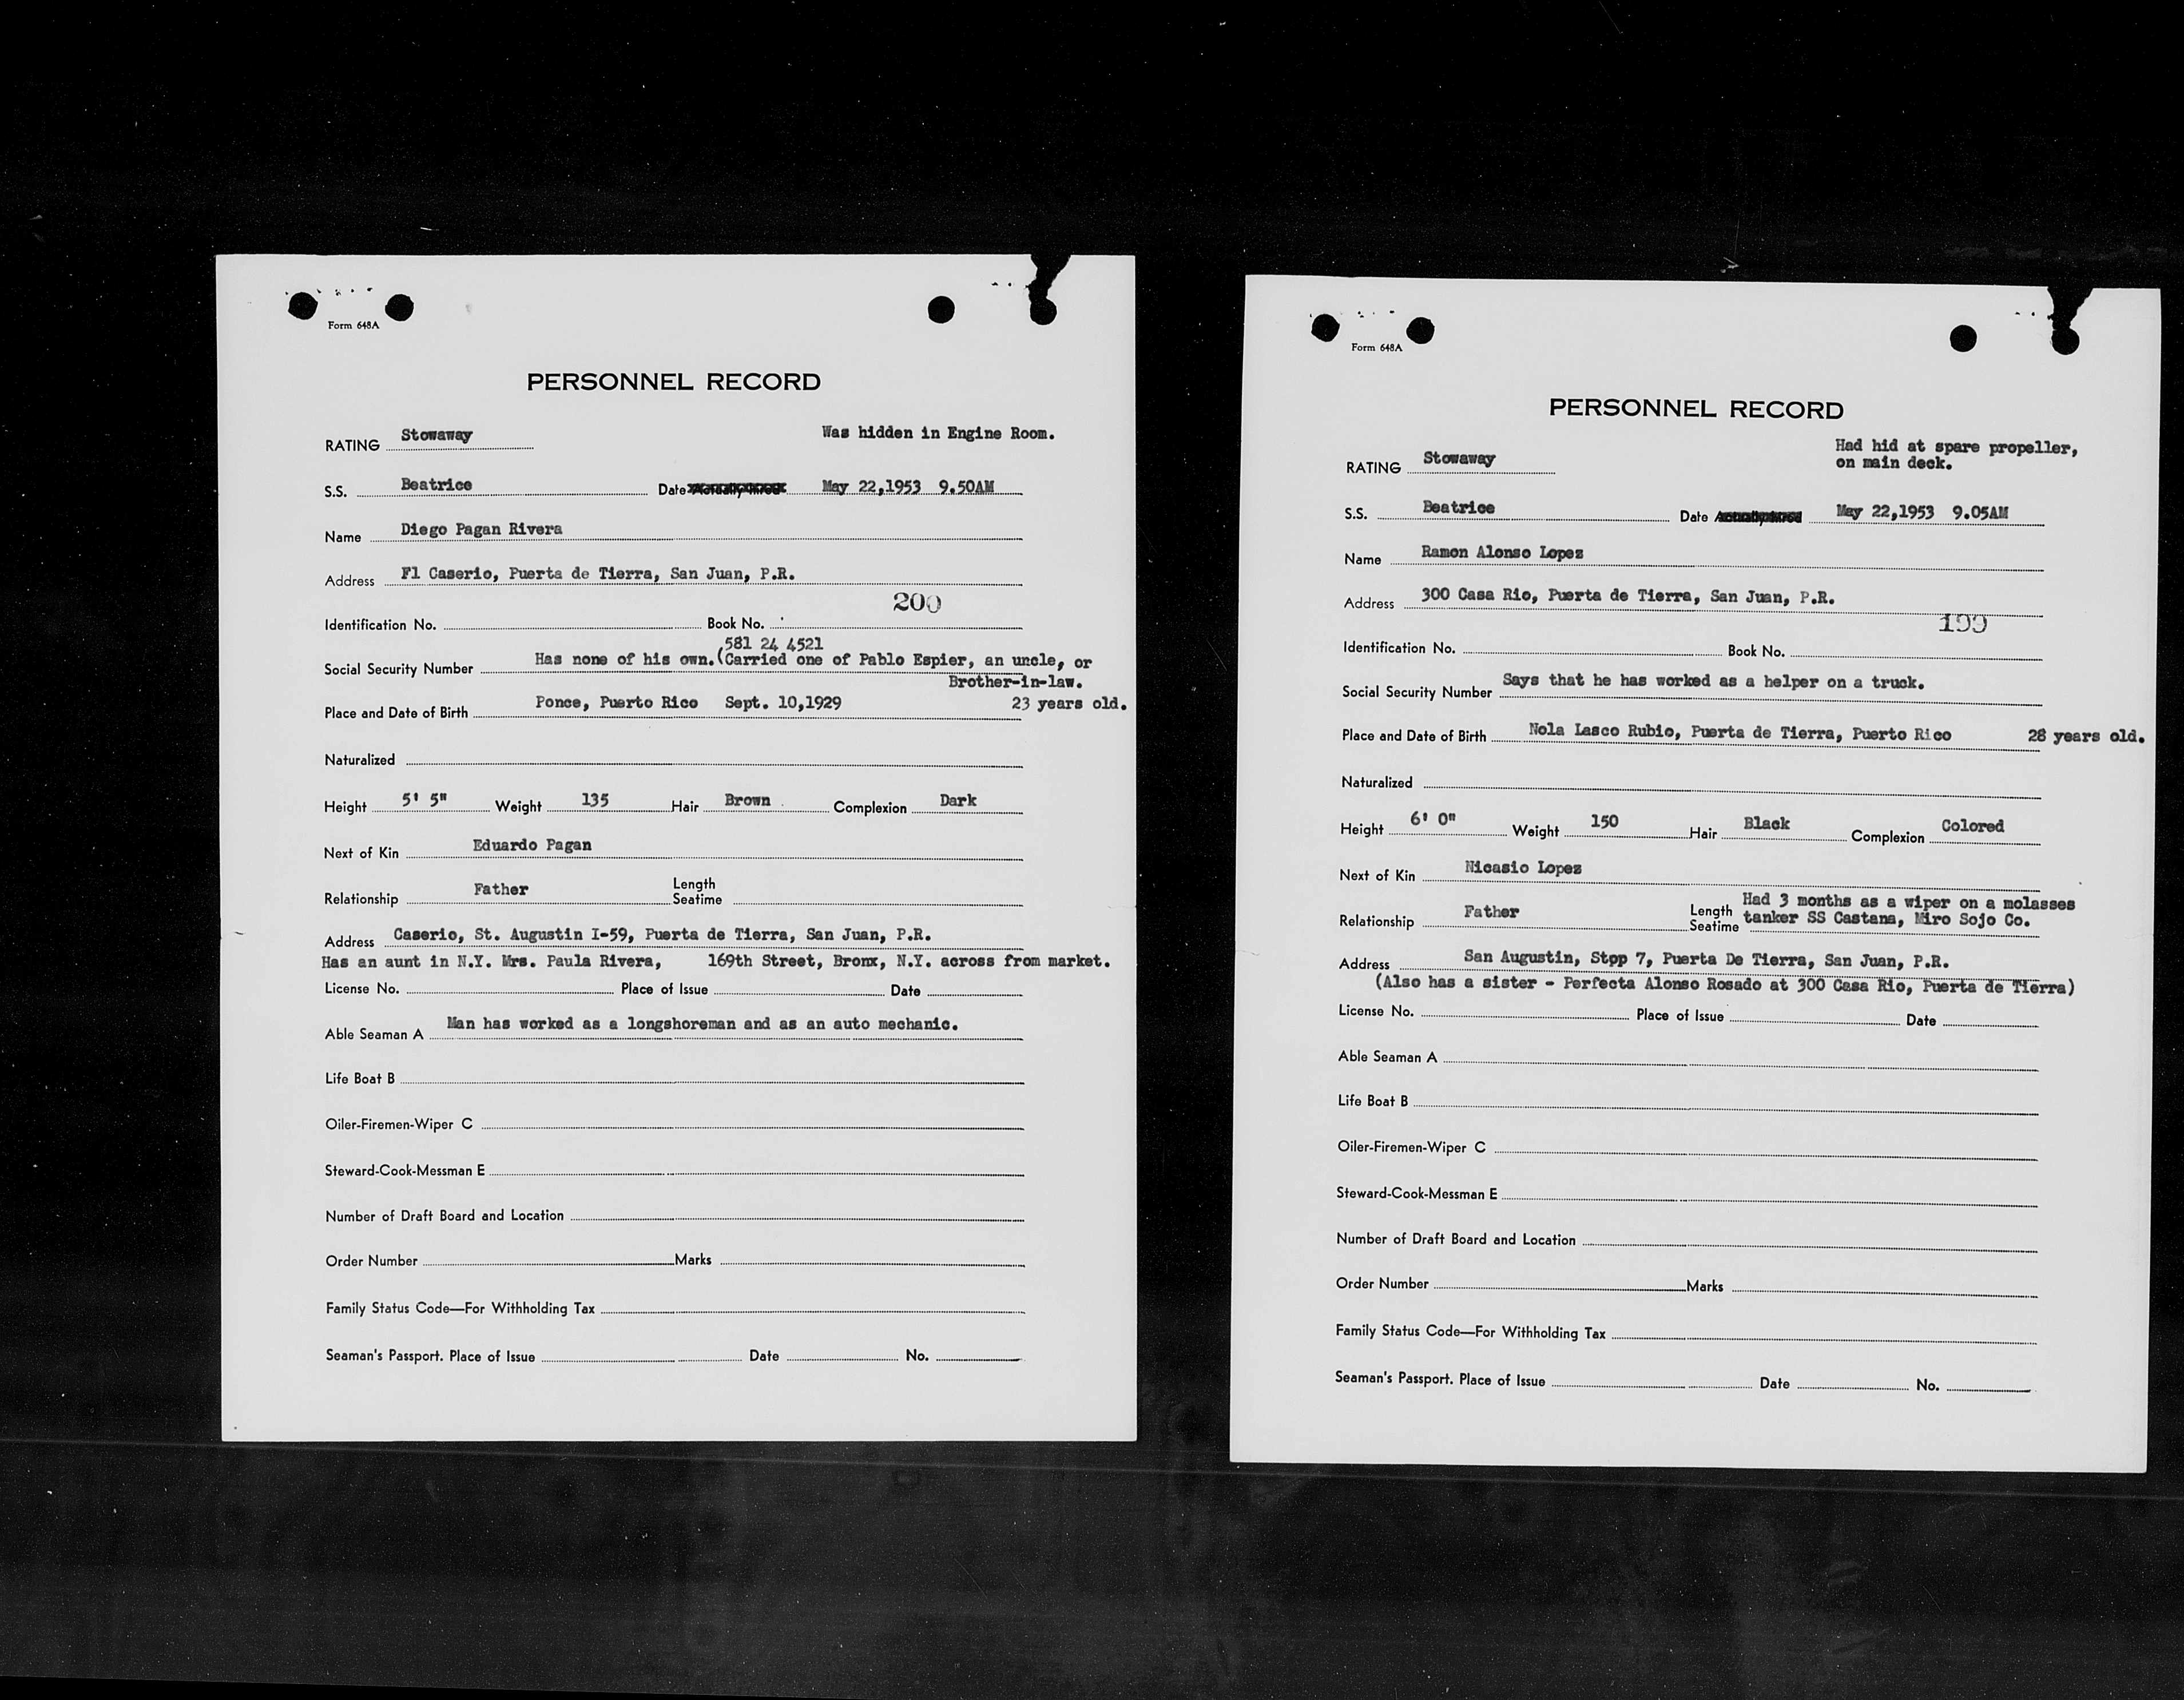 Form 648A
PERSONNEL RECORD
RATING Stowaway Was hidden in Engine Room.
S.S. Beatrice Date May 22,1953 9.50AM
Name Diego Pagan Rivera
Address Fl Caserio, Puerta de Tierra, San Juan, P.R.
200
Identification No. Book No.
581 24 4521
Social Security Number Has none of his own.(Carried one of Pablo Espier, an uncle, or
Brother-in-law.
Place and Date of Birth Ponce, Puerto Rico Sept. 10,1929 23 years old.
Naturalized
Height 5' 5" Weight 135 Hair Brown Complexion Dark
Next of Kin Eduardo Pagan
Relationship Father Length Seatime
Address Caserio, St. Augustin I-59, Puerta de Tierra, San Juan, P.R.
Has an aunt in N.Y. Mrs. Paula Rivera, 169th Street, Bronx, N.Y. across from market.
License No. Place of Issue Date
Able Seaman A Man has worked as a longshoreman and as an auto mechanic.
Life Boat B
Oiler-Firemen-Wiper C
Steward-Cook-Messman E
Number of Draft Board and Location
Order Number Marks
Family Status Code—For Withholding Tax
Seaman's Passport. Place of Issue Date No.
Form 648A
PERSONNEL RECORD
Had hid at spare propeller,
RATING Stowaway on main deck.
S.S. Beatrice Date Actually hired May 22,1953 9.05AM
Name Ramon Alonso Lopez
Address 300 Casa Rio, Puerta de Tierra, San Juan, P.R.
199
Identification No. Book No.
Social Security Number Says that he has worked as a helper on a truck.
Place and Date of Birth Nola Lasco Rubio, Puerta de Tierra, Puerto Rico 28 years old.
Naturalized
Height 6' 0" Weight 150 Hair Black Complexion Colored
Next of Kin Nicasio Lopez
Had 3 months as a wiper on a molasses
Relationship Father Length Seatime tanker SS Castana, Miro Sojo Co.
Address San Augustin, Stpp 7, Puerta De Tierra, San Juan, P.R.
(Also has a sister - Perfecta Alonso Rosado at 300 Casa Rio, Puerta de Tierra)
License No. Place of Issue Date
Able Seaman A
Life Boat B
Oiler-Firemen-Wiper C
Steward-Cook-Messman E
Number of Draft Board and Location
Order Number Marks
Family Status Code—For Withholding Tax
Seaman's Passport. Place of Issue Date No.